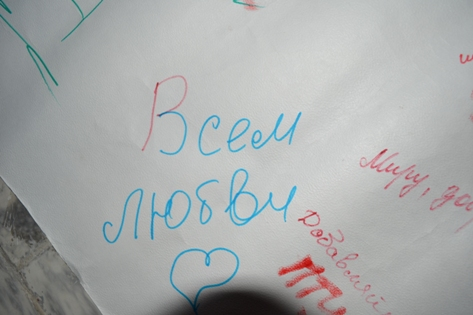 Всем
любви
Миру,
Добавляй